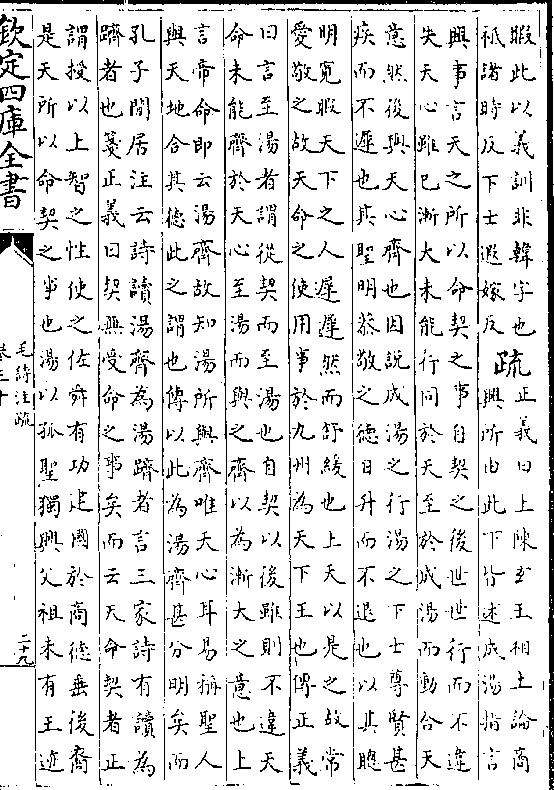 暇此以義訓非韓字也
祇諸時反下士遐嫁反
疏
正義曰上陳玄王相土論商
興所由此下皆述成湯指言
興事言天之所以命契之事自契之後世世行而不違
失天心雖已漸大未能行同於天至於成湯而動合天
意然後與天心齊也因說成湯之行湯之下士尊賢甚
疾而不遲也其聖明恭敬之德日升而不退也以其聰
明寛暇天下之人遲遲然而舒緩也上天以是之故常
愛敬之故天命之使用事於九州為天下王也傳正義
曰言至湯者謂從契而至湯也自契以後雖則不違天
命未能齊於天心至湯而與之齊以為漸大之意也上
言帝命即云湯齊故知湯所與齊唯天心耳易稱聖人
與天地合其德此之謂也傳以此為湯齊甚分明矣而
孔子閒居注云詩讀湯齊為湯躋者言三家詩有讀為
躋者也箋正義曰契無受命之事矣而云天命契者正
謂授以上智之性使之佐舜有功建國於商德垂後裔
是天所以命契之事也湯以孤聖獨興父祖未有王迹
欽定四庫全書
毛詩注疏
卷三十
二十九